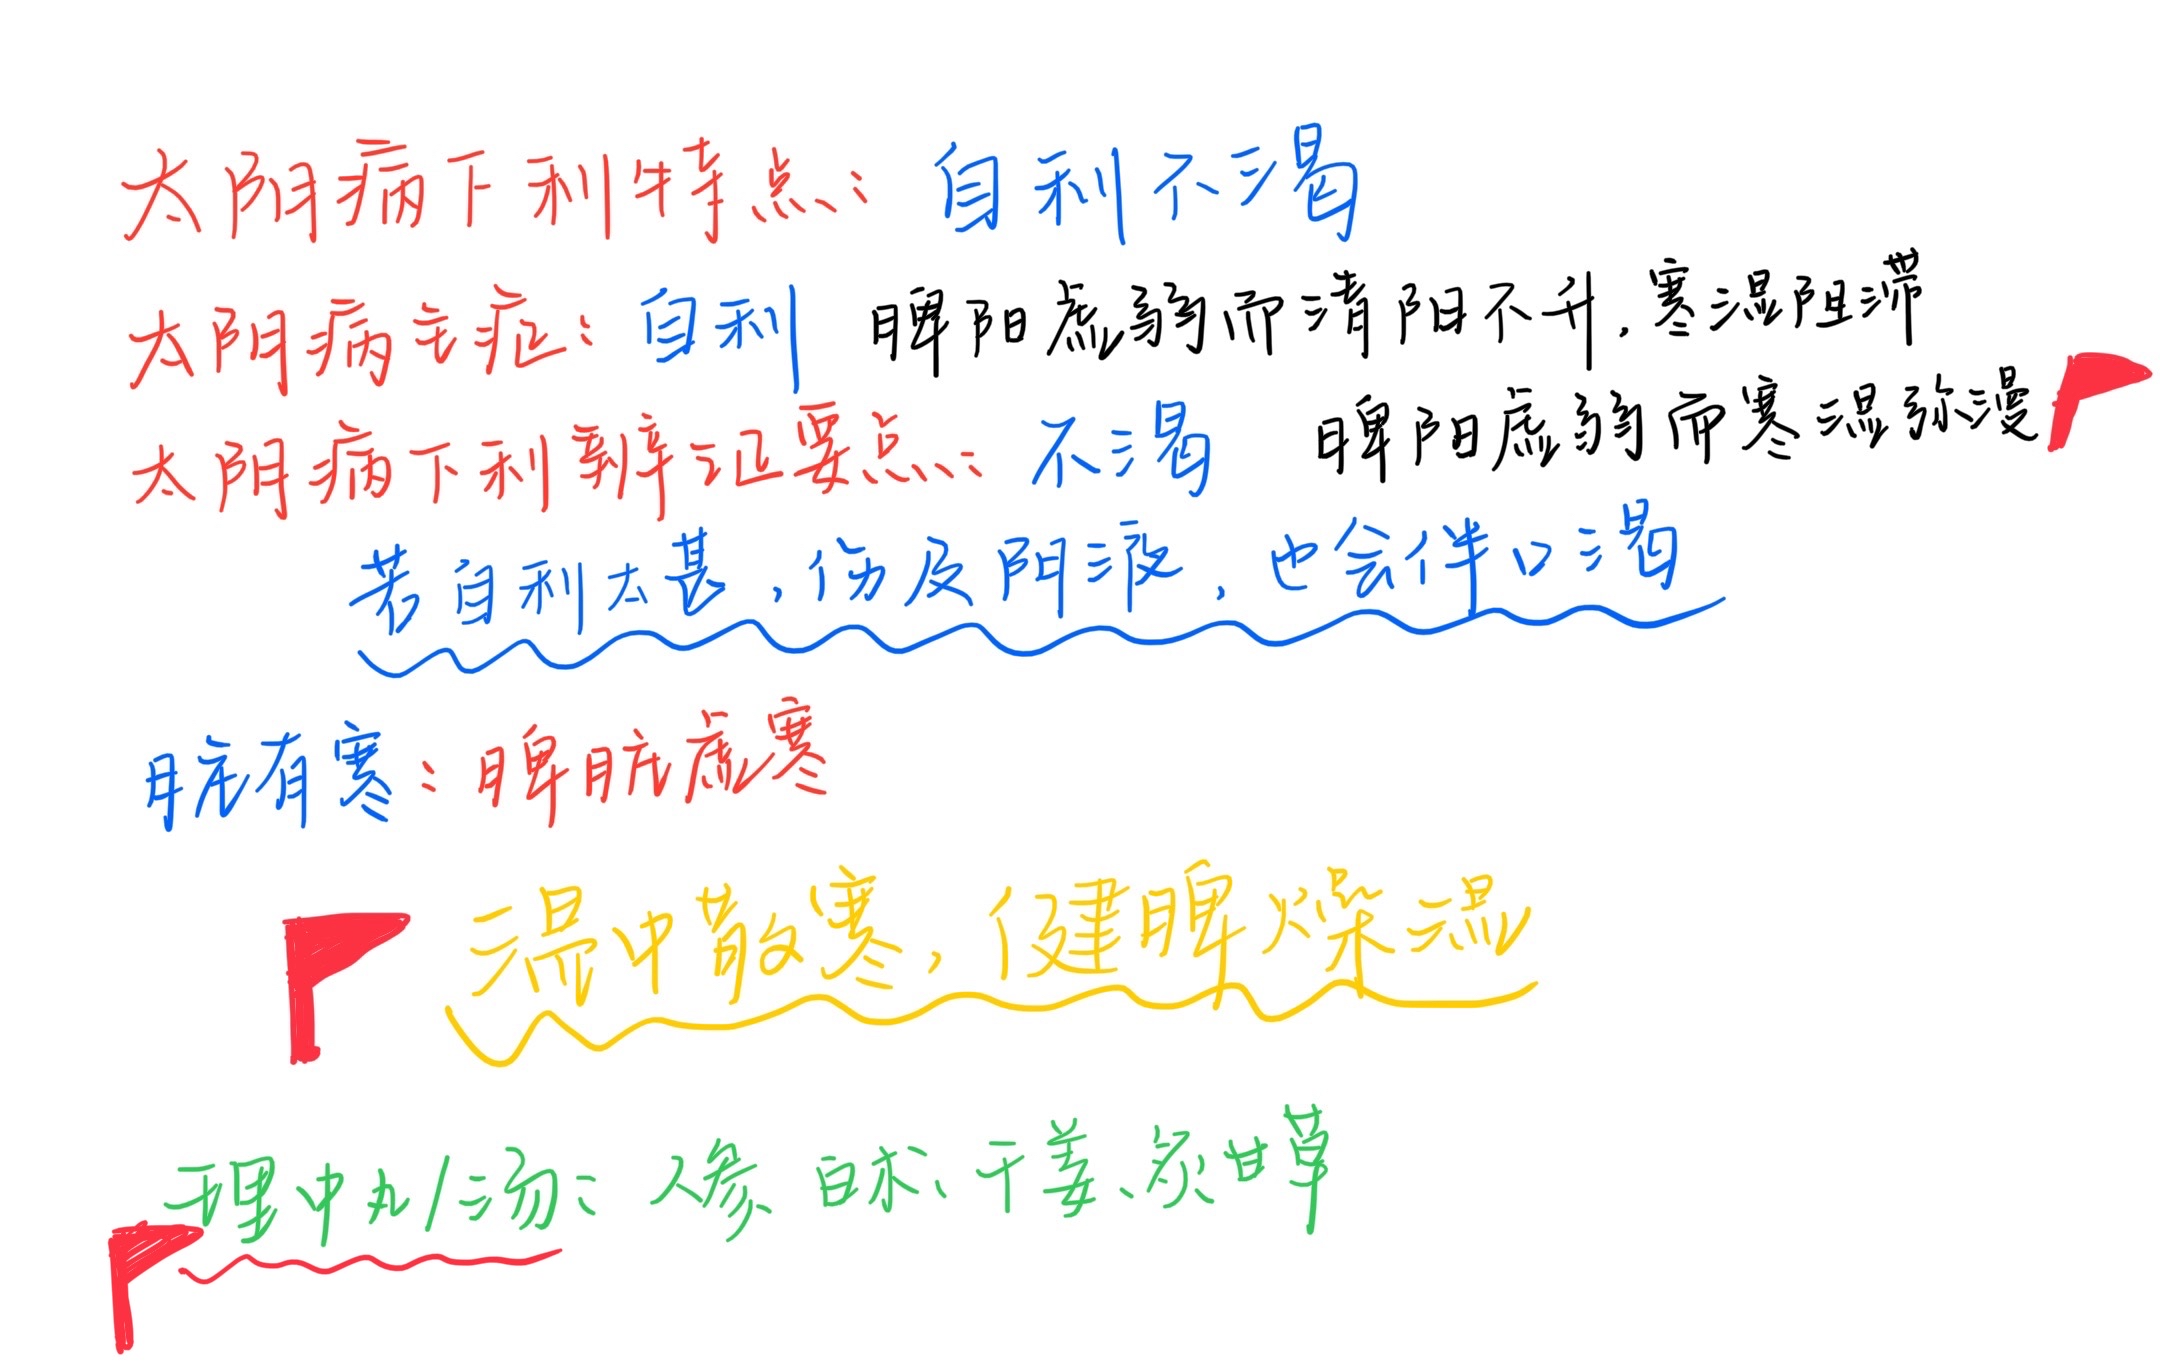 太阴病下利特点：自利不渴
太阴病主症：自利 脾阳虚弱而清阳不升，寒湿阻滞
太阴病下利辨证要点：不渴 脾阳虚弱而寒湿弥漫
若自利太甚，伤及阴液，也会伴口渴
脏有寒：脾脏虚寒
温中散寒，健脾燥湿
理中丸/汤：人参、白术、干姜、炙甘草